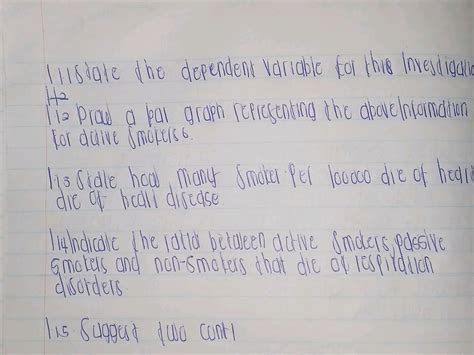 1.1.1 State the dependent variable for this Investigatio
1.1.2
1.1.2 Draw a bar graph representing the above Information
for active smokers.
1.1.3 State how many smoker per 100000 die of heart
die of heart disease
1.1.4 Indicate the ratio between active smokers, passive
smokers and non-smokers that die of respiration
disorders.
1.1.5 Suggest two cont